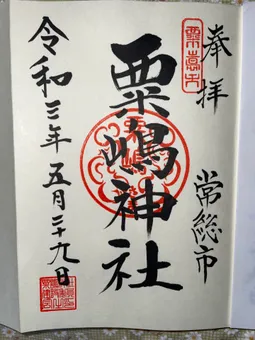 奉拝 常総市
粟嶋神社
令和三年五月二十九日